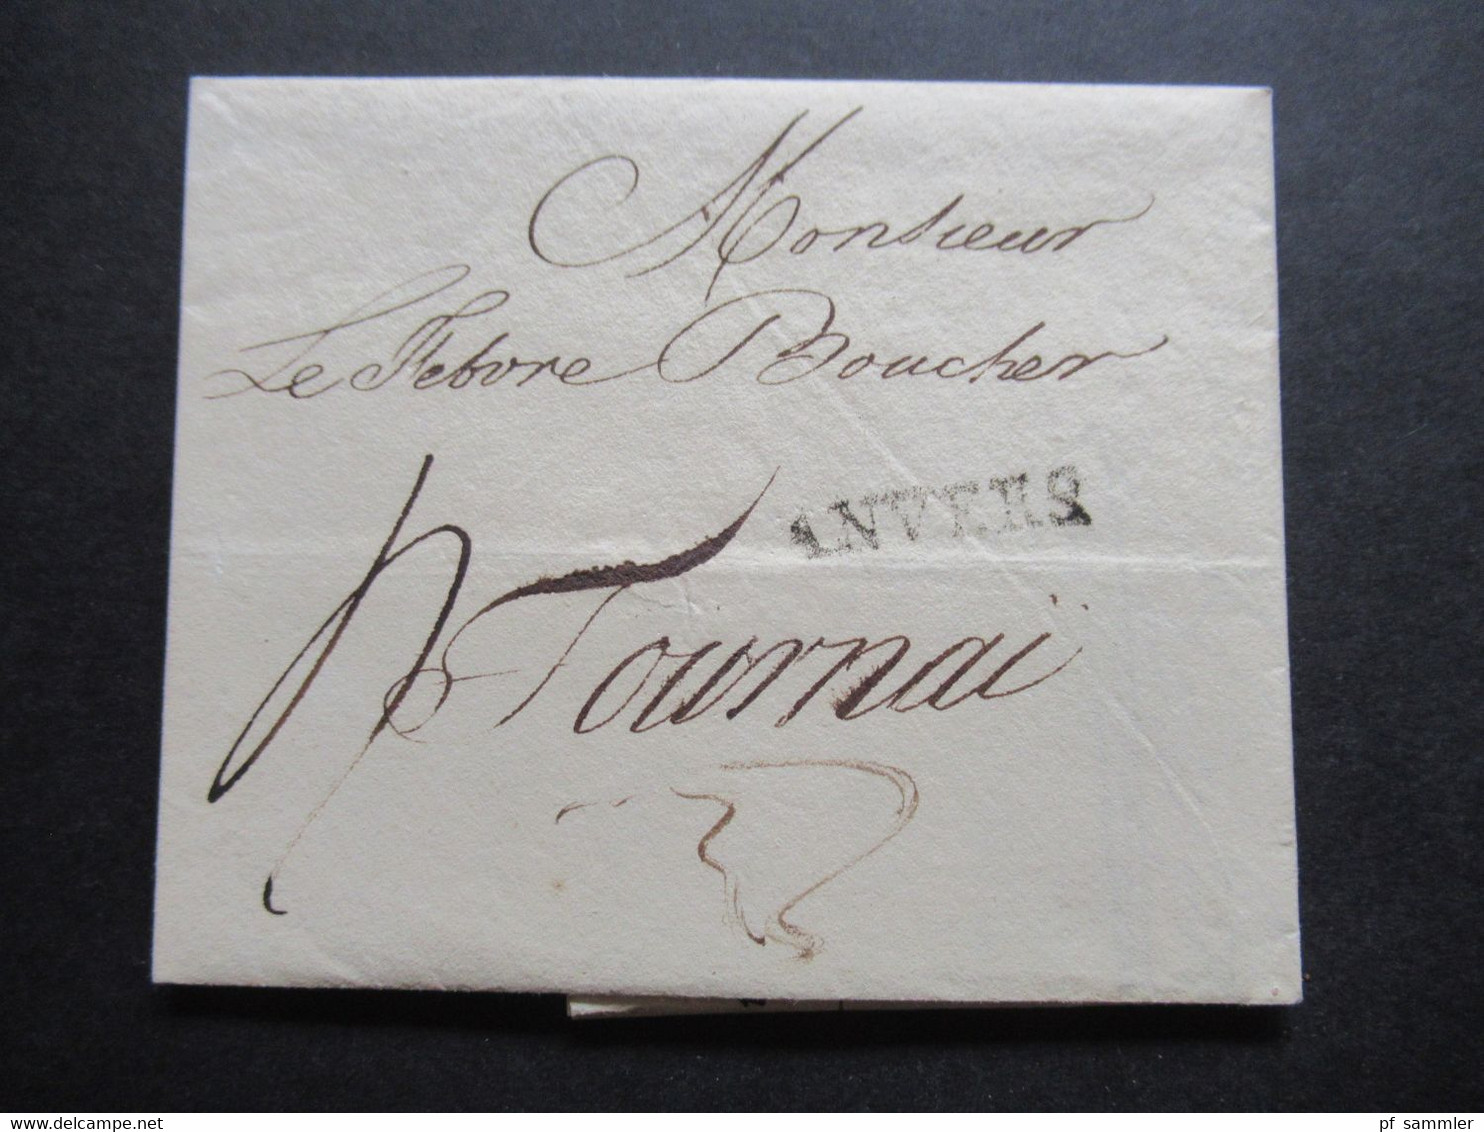 Monsieur
Le Febvre Boucher
ANVERS
Tournaï
delcampe.net
pf_sammler